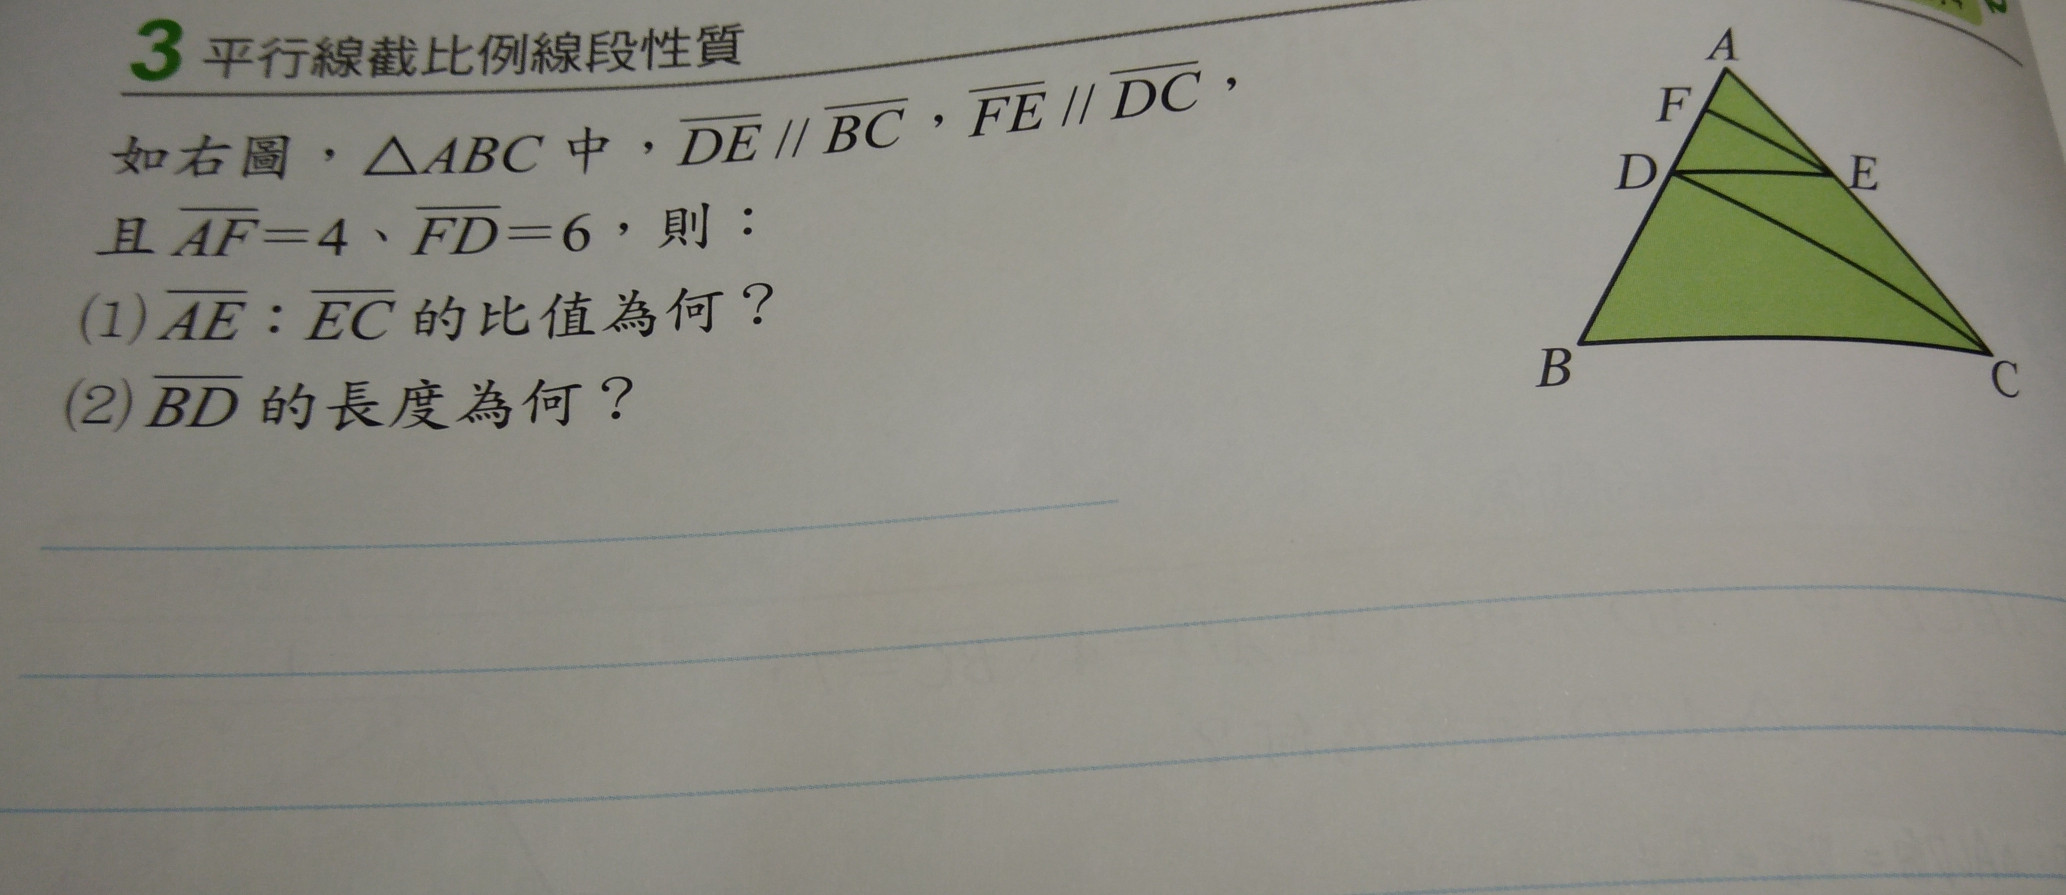 3 平行線截比例線段性質
如右圖，△ABC 中，DE // BC，FE // DC，
且 AF=4、FD=6，則：
(1) AE：EC 的比值為何？
(2) BD 的長度為何？
A
F
D
E
B
C